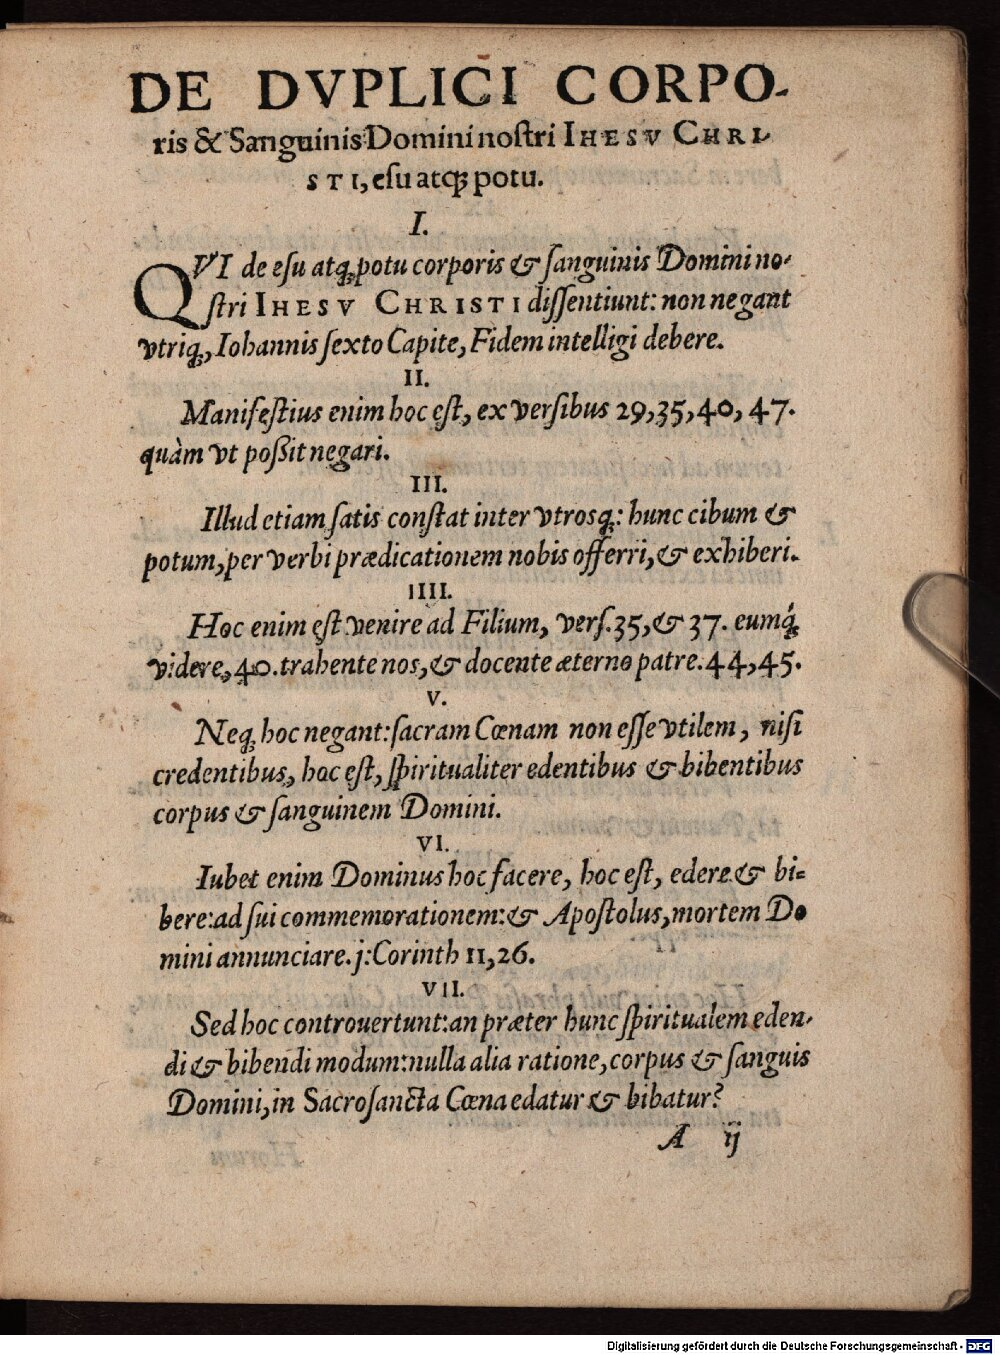 DE DVPLICI CORPO-
ris & Sanguinis Domini nostri IHESV CHRI-
STI, esu atq; potu.
I.
QVI de esu atq; potu corporis & sanguinis Domini no-
stri IHESV CHRISTI dissentiunt: non negant
vtriq;, Iohannis sexto Capite, Fidem intelligi debere.
II.
Manifestius enim hoc est, ex versibus 29, 35, 40, 47.
quàm vt poßit negari.
III.
Illud etiam satis constat inter vtrosq;: hunc cibum &
potum, per verbi prædicationem nobis offerri, & exhiberi.
IIII.
Hoc enim est venire ad Filium, vers. 35, & 37. eumq́;
videre, 40. trahente nos, & docente æterno patre. 44, 45.
V.
Neq; hoc negant: sacram Cœnam non esse vtilem, nisi
credentibus, hoc est, spiritualiter edentibus & bibentibus
corpus & sanguinem Domini.
VI.
Iubet enim Dominus hoc facere, hoc est, edere & bi-
bere: ad sui commemorationem: & Apostolus, mortem Do
mini annunciare. j: Corinth 11, 26.
VII.
Sed hoc controuertunt: an præter hunc spiritualem eden-
di & bibendi modum: nulla alia ratione, corpus & sanguis
Domini, in Sacrosancta Cœna edatur & bibatur?
A ij
Digitalisierung gefördert durch die Deutsche Forschungsgemeinschaft - DFG